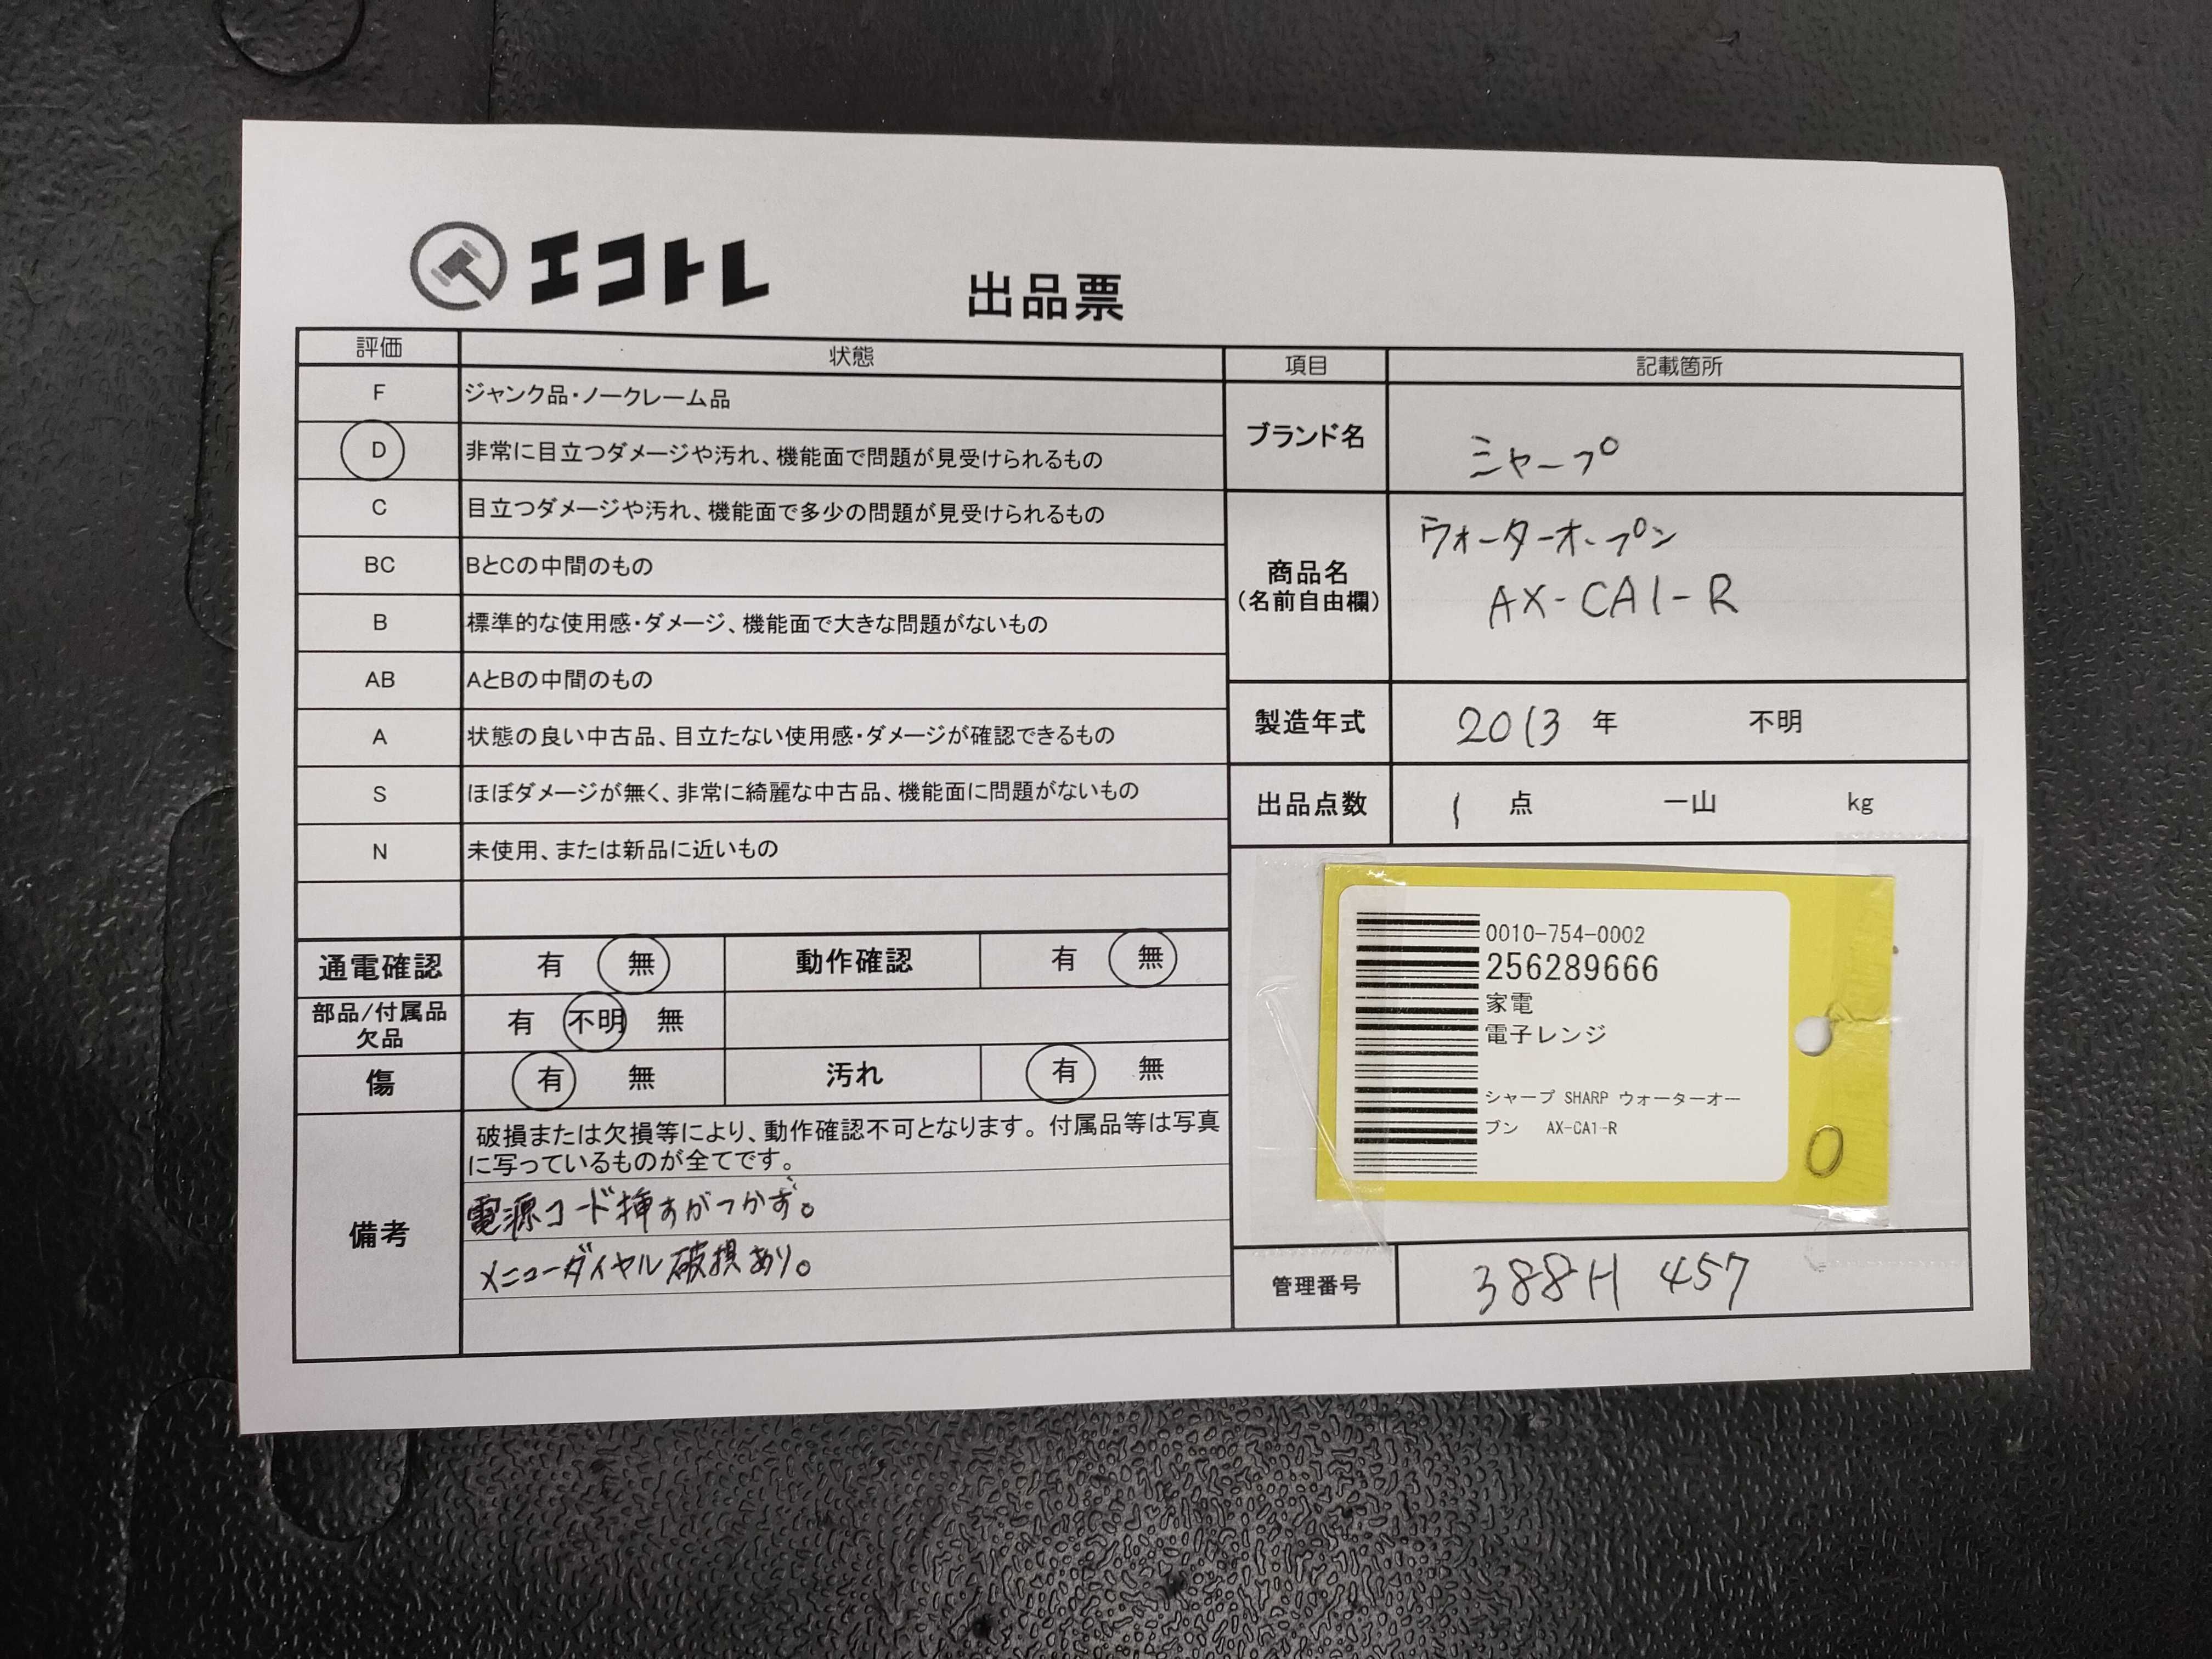 エコトレ
出品票
評価 状態
F ジャンク品・ノークレーム品
D 非常に目立つダメージや汚れ、機能面で問題が見受けられるもの
C 目立つダメージや汚れ、機能面で多少の問題が見受けられるもの
BC BとCの中間のもの
B 標準的な使用感・ダメージ、機能面で大きな問題がないもの
AB AとBの中間のもの
A 状態の良い中古品、目立たない使用感・ダメージが確認できるもの
S ほぼダメージが無く、非常に綺麗な中古品、機能面に問題がないもの
N 未使用、または新品に近いもの
通電確認 有 無 動作確認 有 無
部品/付属品 有 不明 無
欠品
傷 有 無 汚れ 有 無
備考
破損または欠損等により、動作確認不可となります。付属品等は写真
に写っているものが全てです。
電源コード挿すがつかず。
メニューダイヤル破損あり。
項目 記載箇所
ブランド名 シャープ
商品名
(名前自由欄)
ウォーターオープン
AX-CA1-R
製造年式 2013 年 不明
出品点数 1 点 一山 kg
0010-754-0002
256289666
家電
電子レンジ
シャープ SHARP ウォーターオー
ブン AX-CA1-R
0
管理番号 388H 457